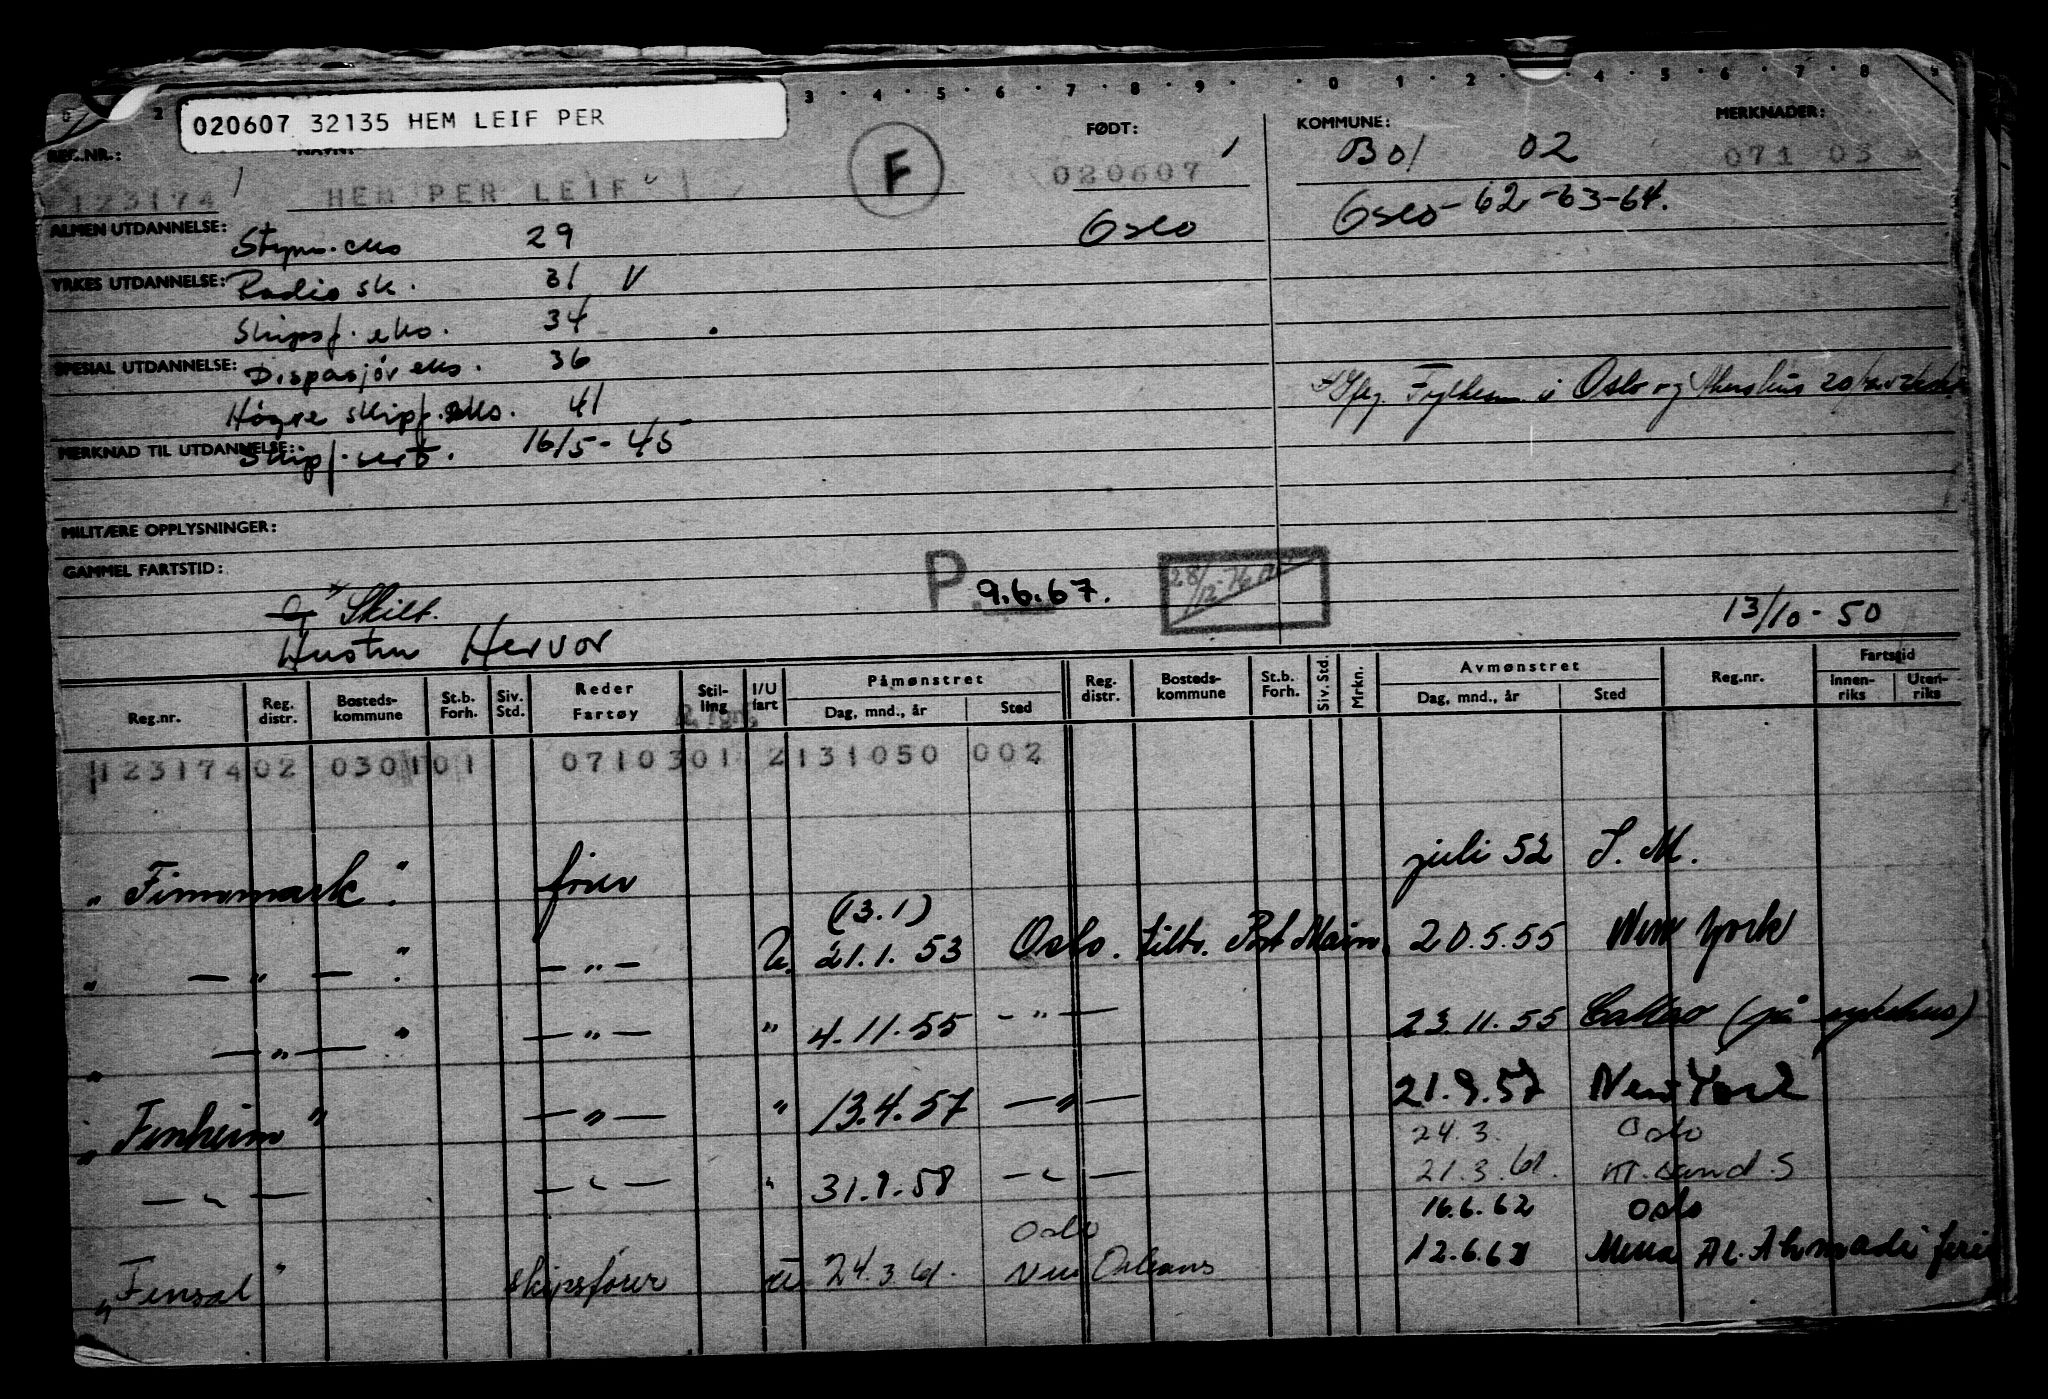 020607 32135 HEM LEIF PER
REG.NR.: NAVN: FØDT: KOMMUNE: MERKNADER:
123174 HEM PER LEIF F 020607 301 02 071 03
Oslo Oslo- 62-63-64.
ALMEN UTDANNELSE: Styrm. eks 29
YRKES UTDANNELSE: Radio sk. 31 V
Skipsf. eks. 34
SPESIAL UTDANNELSE: Dispasjör eks. 36
Høgre skipf. eks. 41
Fylkesm. i Oslo og Akershus
MERKNAD TIL UTDANNELSE: Skipf. sert. 16/5-45
MILITÆRE OPPLYSNINGER:
GAMMEL FARTSTID:
P. 9.6.67. 28/12-76
G Skilt.
Hustru Hervor
13/10-50
Reg.nr. Reg. distr. Bosteds-kommune St.b. Forh. Siv. Std. Reder Fartøy Stil-ling I/U fart Påmønstret Dag, mnd., år Sted Reg. distr. Bosteds-kommune St.b. Forh. Siv. Std. Mrkn. Avmønstret Dag, mnd., år Sted Reg.nr. Fartstid Innen-riks Uten-riks
123174 02 0301 01 0710301 2 131050 002
"Finnmark" fører juli 52 S. M.
(3.1)
" — " — " — " — U. 21.1. 53 Oslo. tiltr. Port Maim. 20.5.55 New York
" — " — " — " — " 4.11.55 - " — 23.11.55 Callao (på sykehus)
"Finheim" — " — " 13.4.57 — " — 21.9.57 New York
24.3. Oslo
— " — — " — " 31.1.58 — " — 21.3.61. Kr.sand S
16.6.62 Oslo
Oslo
"Finsal" skipsfører u. 24.3.61. New Orleans 12.6.63 Mena Al. Ahmadi ferie